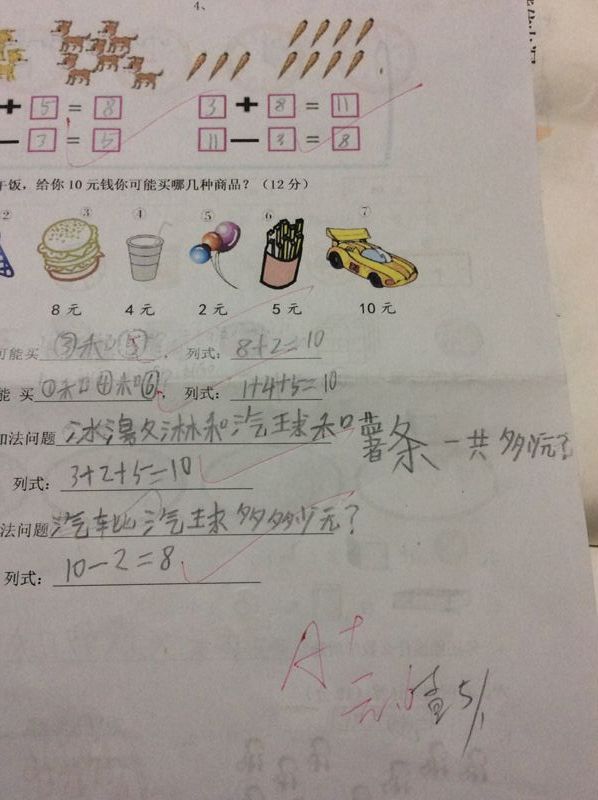 4、
+ 5 = 8 3 + 8 = 11
— 3 = 5 11 — 3 = 8
午饭，给你 10 元钱你可能买哪几种商品？（12 分）
2 ③ ④ 5 6 ⑦
8 元 4 元 2 元 5 元 10 元
可能买 ③和⑤ ， 列式： 8+2=10
能 买 ①和④和⑥， 列式： 1+4+5=10
加法问题 冰淇淋和汽球和薯条一共多少元？
列式： 3+2+5=10
法问题 汽车比汽球多多少元？
列式： 10-2=8
A+